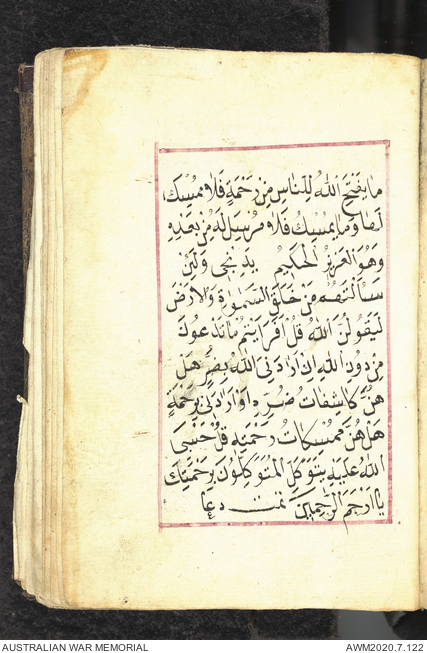 مَا يَفْتَحِ اللّٰهُ لِلنَّاسِ مِنْ رَحْمَةٍ فَلَا مُمْسِكَ
لَهَا وَمَا يُمْسِكْ فَلَا مُرْسِلَ لَهُ مِنْ بَعْدِهِ
وَهُوَ الْعَزِيزُ الْحَكِيمُ يدنجى وَلَئِنْ
سَأَلْتَهُمْ مَنْ خَلَقَ السَّمٰوَاتِ وَالْاَرْضَ
لَيَقُولُنَّ اللّٰهُ قُلْ اَفَرَاَيْتُمْ مَا تَدْعُونَ
مِنْ دُونِ اللّٰهِ اِنْ اَرَادَنِىَ اللّٰهُ بِضُرٍّ هَلْ
هُنَّ كَاشِفَاتُ ضُرِّهِ اَوْ اَرَادَنِى بِرَحْمَةٍ
هَلْ هُنَّ مُمْسِكَاتُ رَحْمَتِهِ قُلْ حَسْبِىَ
اللّٰهُ عَلَيْهِ يَتَوَكَّلُ الْمُتَوَكِّلُونَ بِرَحْمَتِكَ
يَا اَرْحَمَ الرَّاحِمِينَ تمت دعا
AUSTRALIAN WAR MEMORIAL
AWM2020.7.122